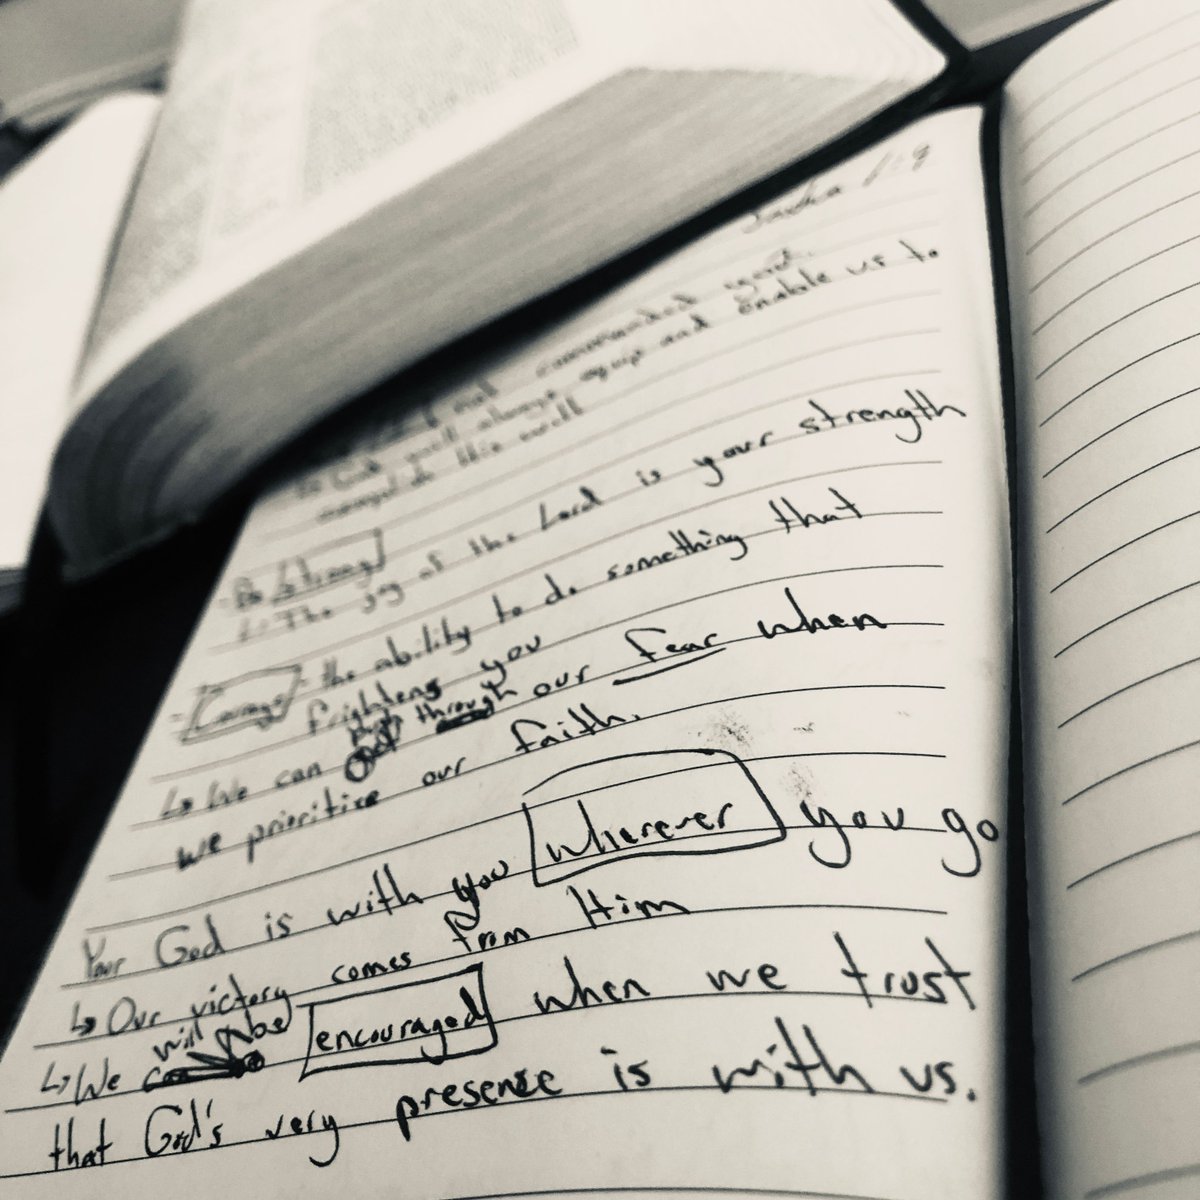 Joshua 1:9
not commanded you?
God will always equip and enable us to
this will
- Be strong
↳ The joy of the Lord is your strength
- Courage = the ability to do something that
frightens you
↳ We can through our fear when
we prioritize our faith.
Your God is with you wherever you go
↳ Our victory comes from Him
↳ We will be encouraged when we trust
that God's very presence is with us.